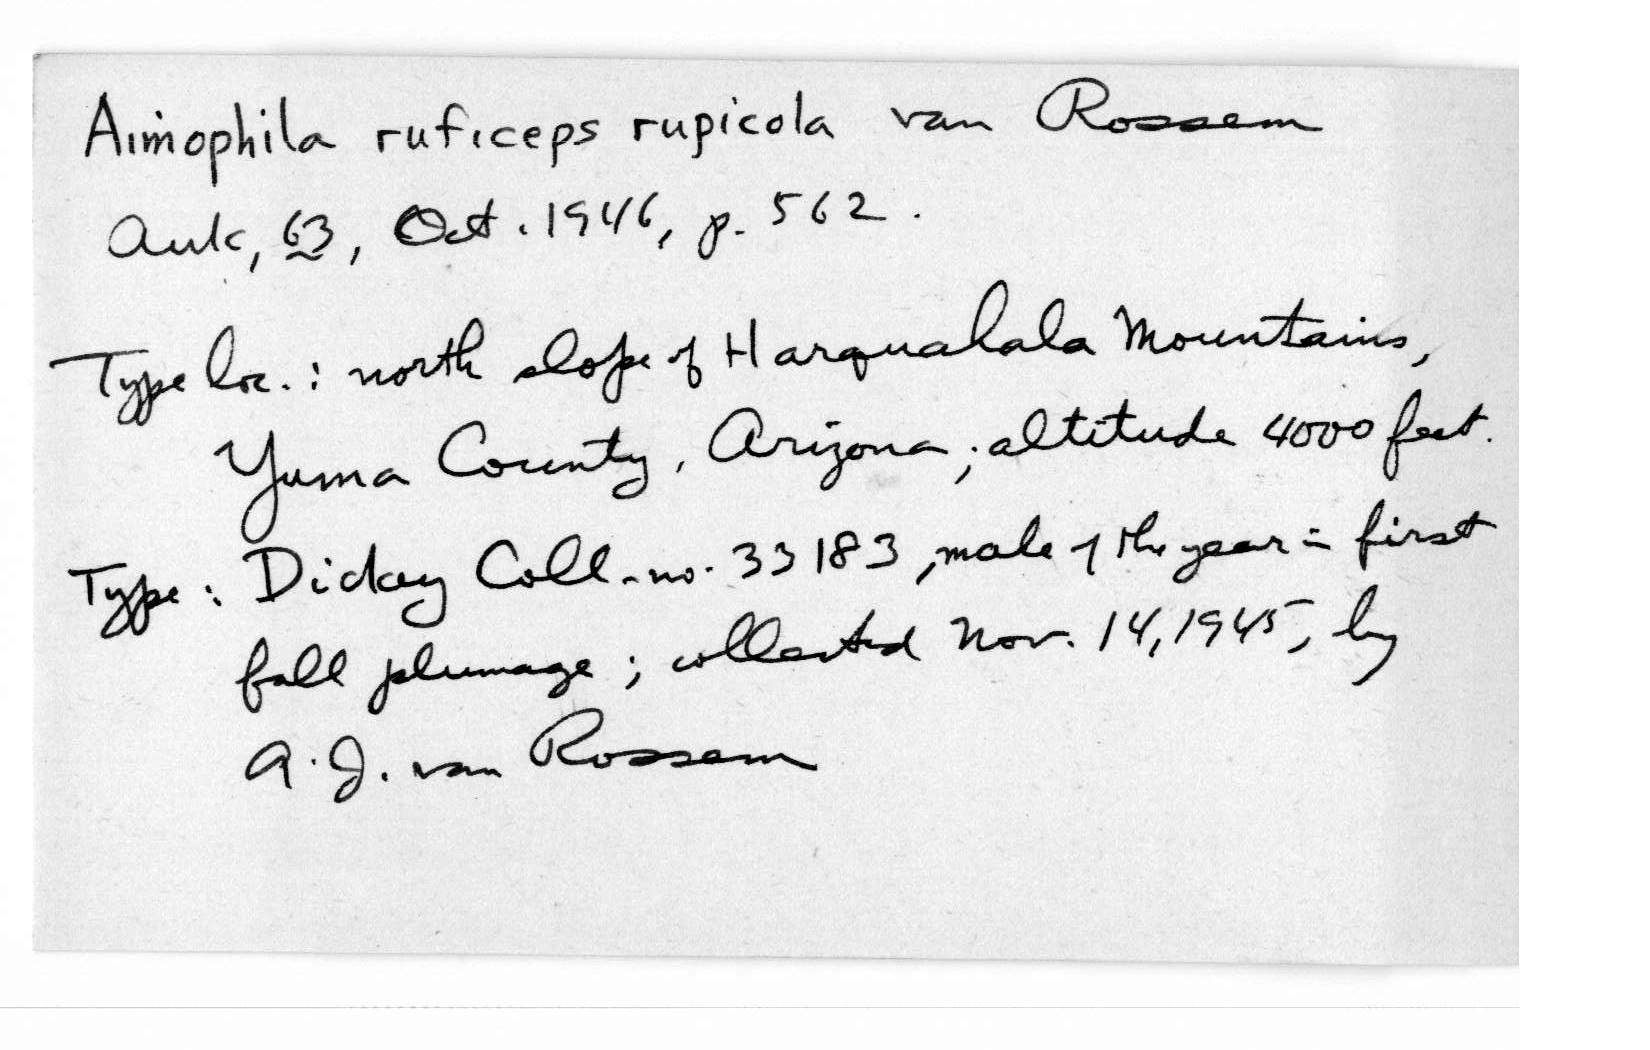 Aimophila ruficeps rupicola van Rossem
Auk, 63, Oct. 1946, p. 562.
Type loc.: north slope of Harquahala Mountains,
Yuma County, Arizona; altitude 4000 feet.
Type: Dickey Coll. no. 33183, male of the year = first
fall plumage; collected Nov. 14, 1945, by
A. J. van Rossem